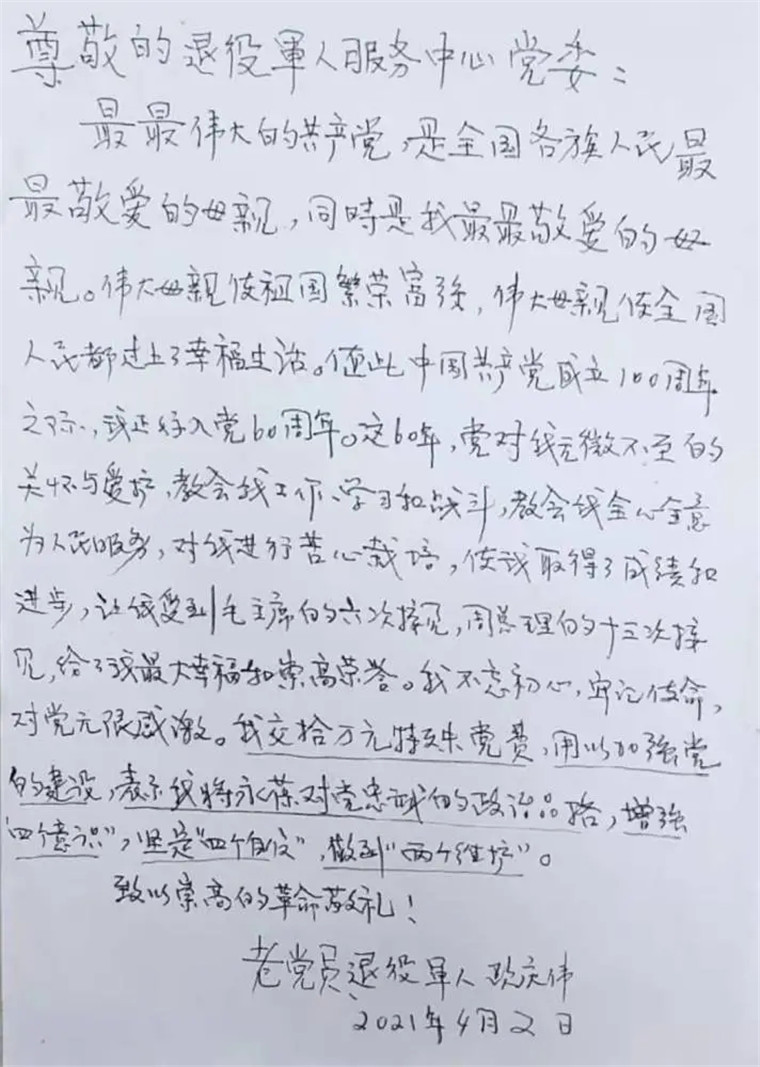 尊敬的退役軍人服务中心党委：
最最伟大的共产党，是全国各族人民最
最敬爱的母亲，同時是我最最敬爱的母
亲。伟大母亲使祖国繁荣富强，伟大母亲使全国
人民都过上了幸福生活。值此中国共产党成立100周年
之际，我正好入党60周年。这60年，党对我无微不至的
关怀与爱护，教会我工作、学习和战斗，教会我全心全意
为人民服务，对我进行苦心栽培，使我取得了成绩和
进步，让我受到毛主席的六次接见，周总理的十三次接
见，给了我最大幸福和崇高荣誉。我不忘初心，牢记使命，
对党无限感激。我交拾万元特殊党费，用以加强党
的建设，表示我将永葆对党忠诚的政治品格，增强
"四个意识"，坚定"四个自信"，做到"两个维护"。
致以崇高的革命敬礼！
老党员、退役軍人 欧庆伟
2021年4月2日